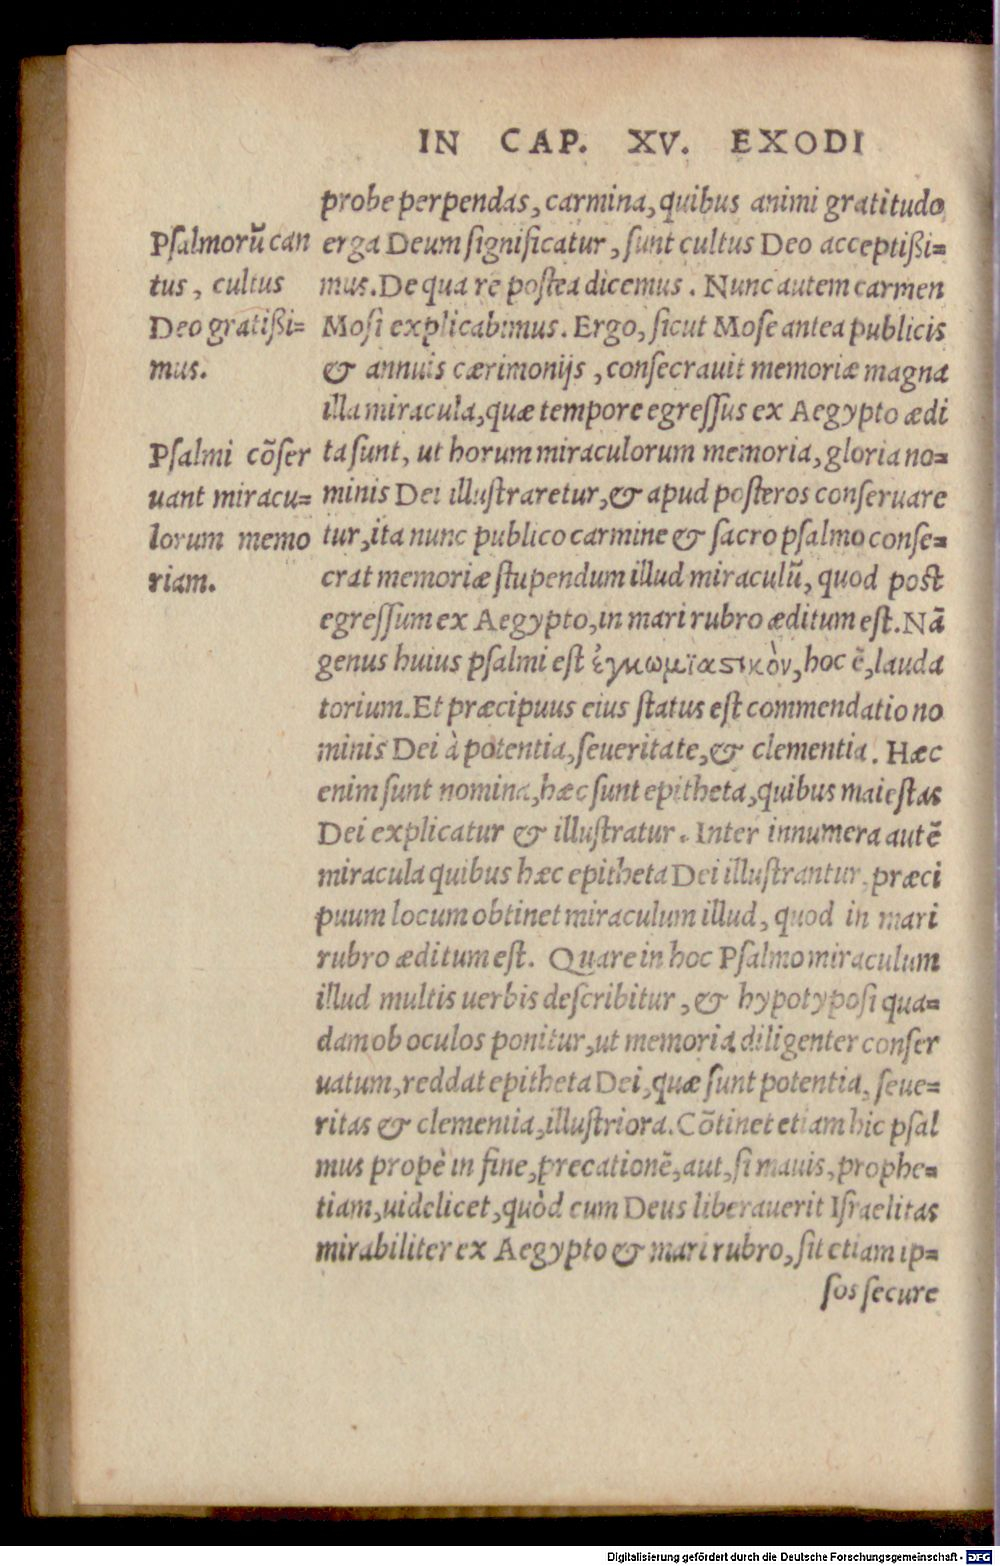 IN CAP. XV. EXODI
probe perpendas, carmina, quibus animi gratitudo
erga Deum ſignificatur, ſunt cultus Deo acceptißi=
mus. De qua re poſtea dicemus. Nunc autem carmen
Moſi explicabimus. Ergo, ſicut Moſe antea publicis
& annuis cærimonijs, conſecrauit memoriæ magna
illa miracula, quæ tempore egreſſus ex Aegypto ædi
ta ſunt, ut horum miraculorum memoria, gloria no=
minis Dei illuſtraretur, & apud poſteros conſeruare
tur, ita nunc publico carmine & ſacro pſalmo conſe=
crat memoriæ ſtupendum illud miraculũ, quod poſt
egreſſum ex Aegypto, in mari rubro æditum eſt. Nã
genus huius pſalmi eſt ἐγκωμϊαϛικὸν, hoc ẽ, lauda
torium. Et præcipuus eius ſtatus eſt commendatio no
minis Dei à potentia, ſeueritate, & clementia. Hæc
enim ſunt nomina, hæc ſunt epitheta, quibus maieſtas
Dei explicatur & illuſtratur. Inter innumera autẽ
miracula quibus hæc epitheta Dei illuſtrantur, præci
puum locum obtinet miraculum illud, quod in mari
rubro æditum eſt. Quare in hoc Pſalmo miraculum
illud multis uerbis deſcribitur, & hypotypoſi qua=
dam ob oculos ponitur, ut memoria diligenter conſer
uatum, reddat epitheta Dei, quæ ſunt potentia, ſeue=
ritas & clementia, illuſtriora. Cõtinet etiam hic pſal
mus propè in fine, precationẽ, aut, ſi mauis, prophe=
tiam, uidelicet, quòd cum Deus liberauerit Iſraelitas
mirabiliter ex Aegypto & mari rubro, ſit etiam ip=
ſos ſecure
Pſalmorũ can
tus, cultus
Deo gratißi=
mus.
Pſalmi cõſer
uant miracu=
lorum memo
riam.
Digitalisierung gefördert durch die Deutsche Forschungsgemeinschaft - DFG